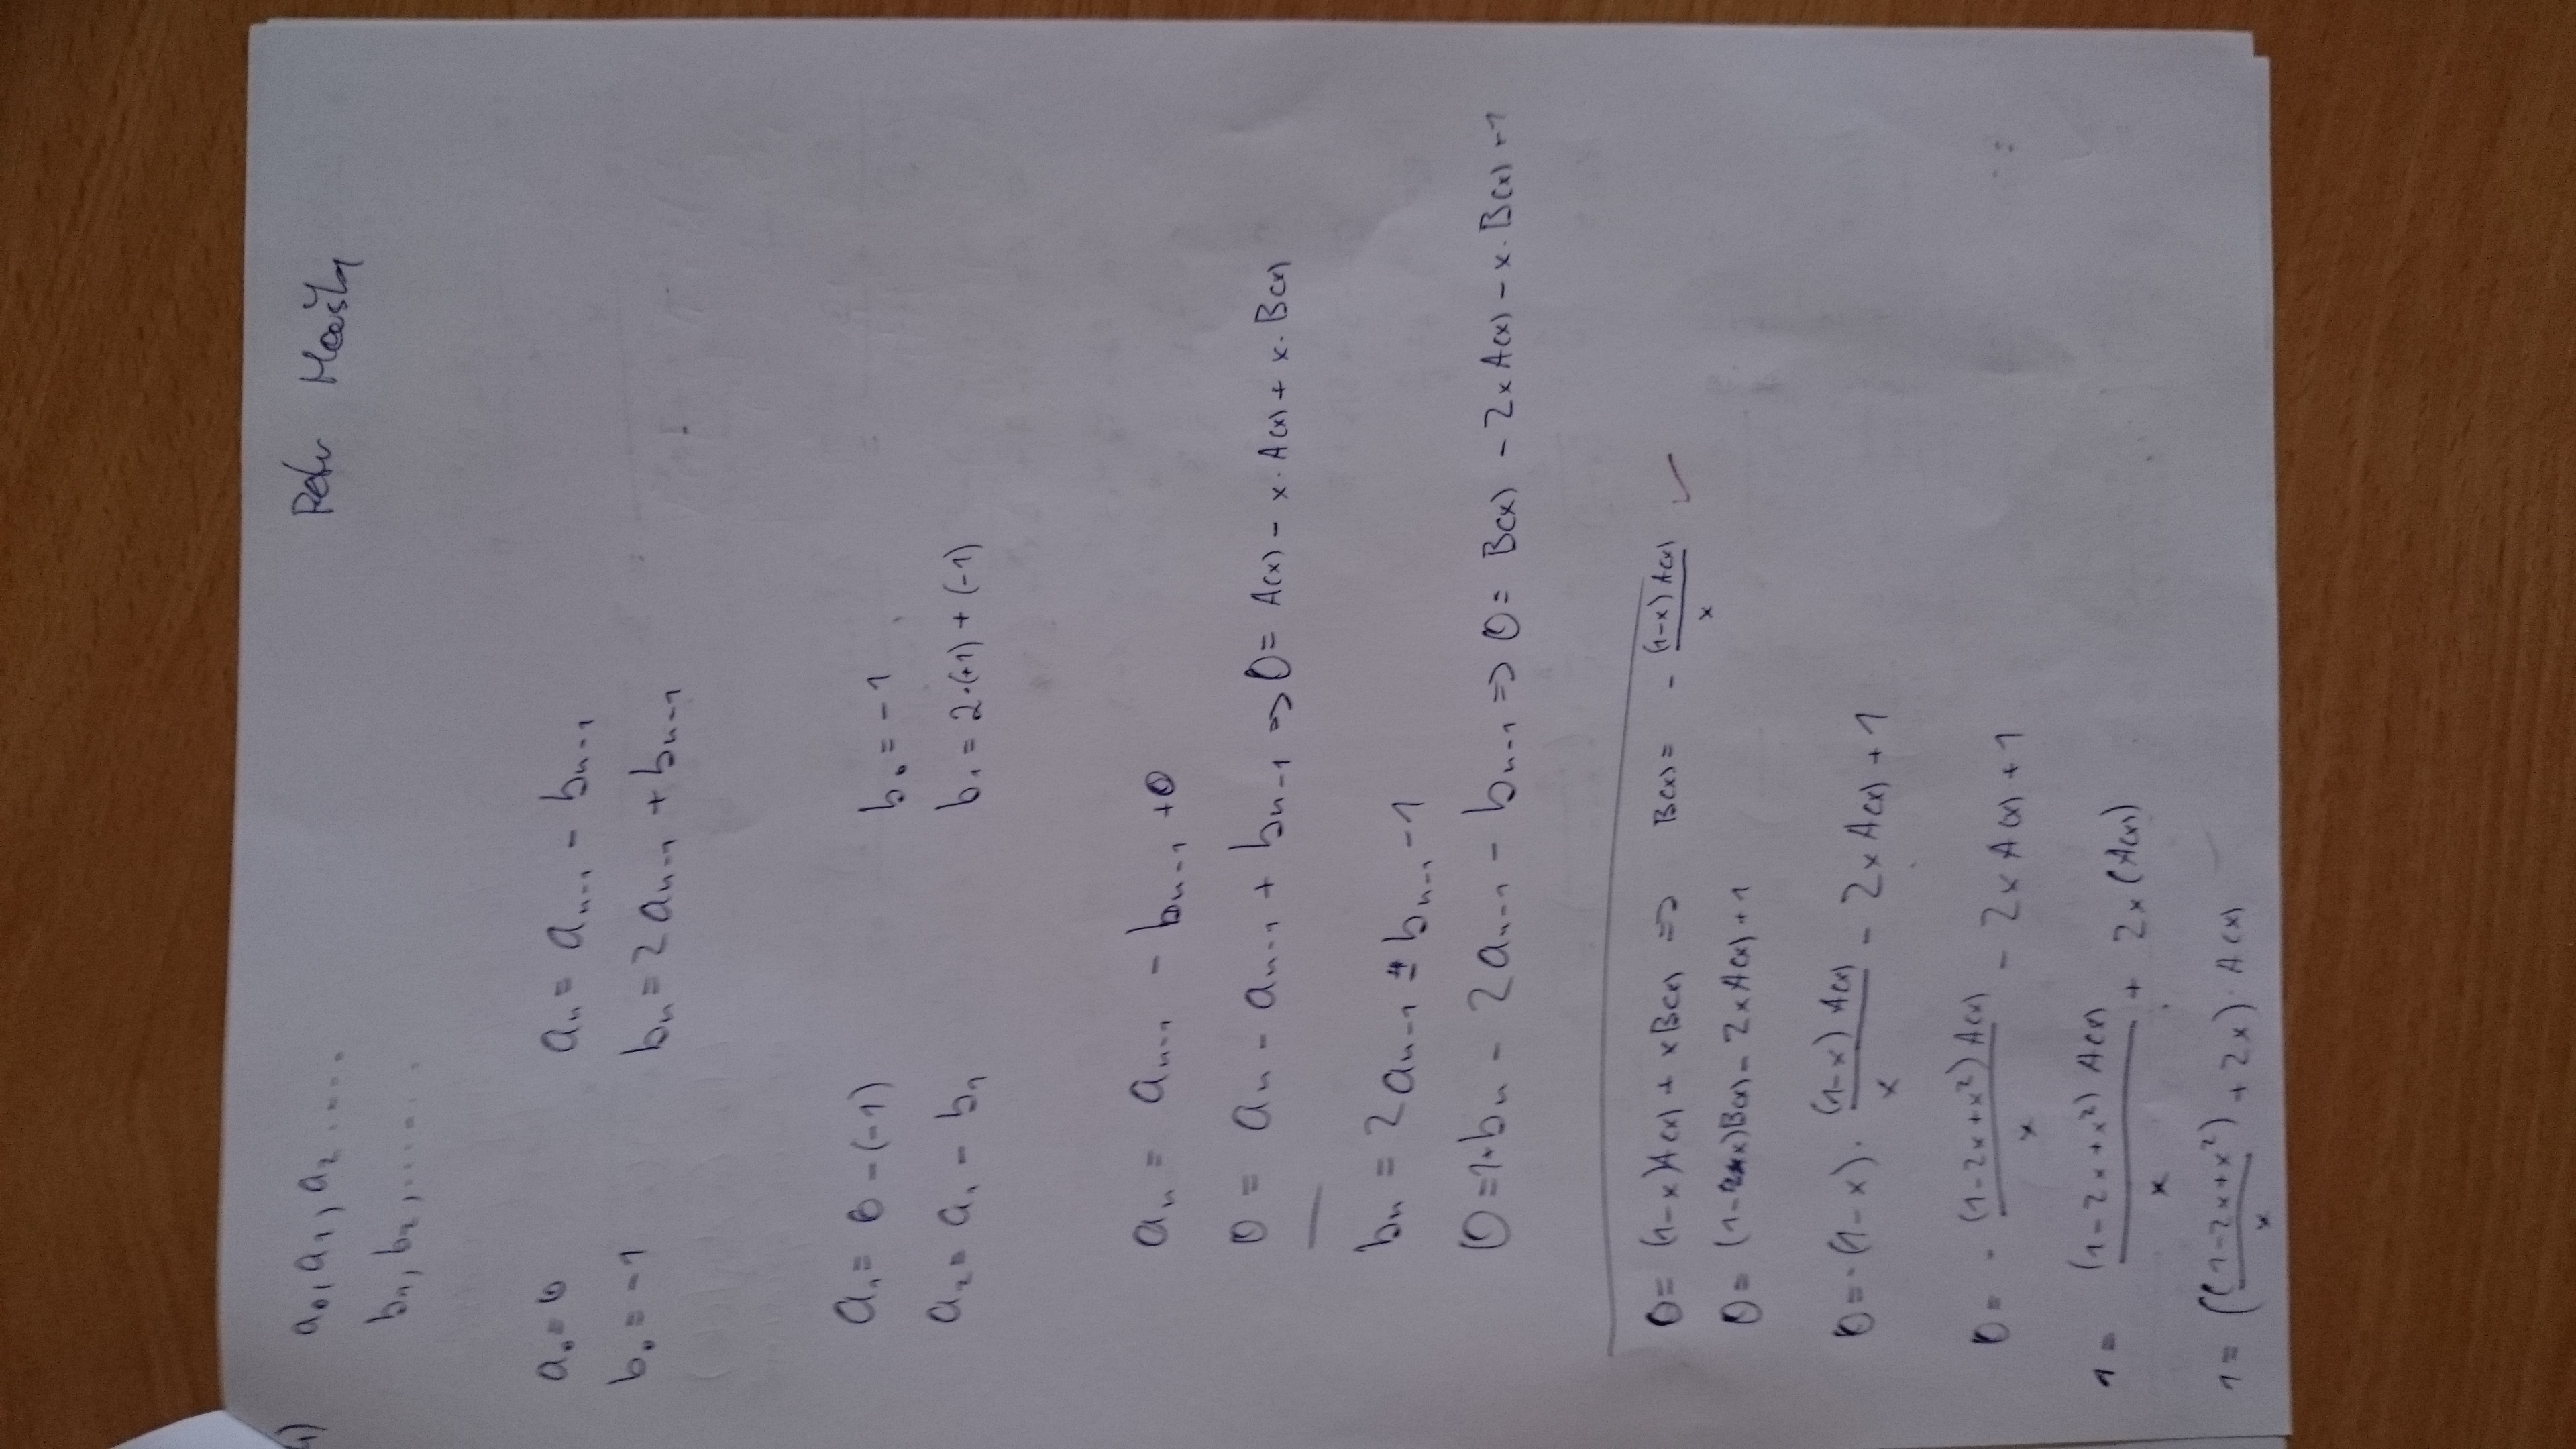 1)
a₀, a₁, a₂ .....
Petr
b₁, b₂, .......
a₀ = 0
aₙ = aₙ₋₁ - bₙ₋₁
b₀ = -1
bₙ = 2aₙ₋₁ + bₙ₋₁
a₁ = 0 - (-1)
b₀ = -1
a₂ = a₁ - b₁
b₁ = 2·(+1) + (-1)
aₙ = aₙ₋₁ - bₙ₋₁ + 0
0 = aₙ - aₙ₋₁ + bₙ₋₁ => 0 = A(x) - x·A(x) + x·B(x)
bₙ = 2aₙ₋₁ + bₙ₋₁ - 1
0 = 1 + bₙ - 2aₙ₋₁ - bₙ₋₁ => 0 = B(x) - 2xA(x) - x·B(x) + 1
0 = (1-x)A(x) + xB(x) => B(x) = - (1-x)A(x) / x ✓
0 = (1-x)B(x) - 2xA(x) + 1
0 = -(1-x) · (1-x)A(x) / x - 2xA(x) + 1
0 = - (1-2x+x²)A(x) / x - 2xA(x) + 1
1 = (1-2x+x²)A(x) / x + 2x(A(x))
1 = ((1-2x+x²) / x + 2x)·A(x)